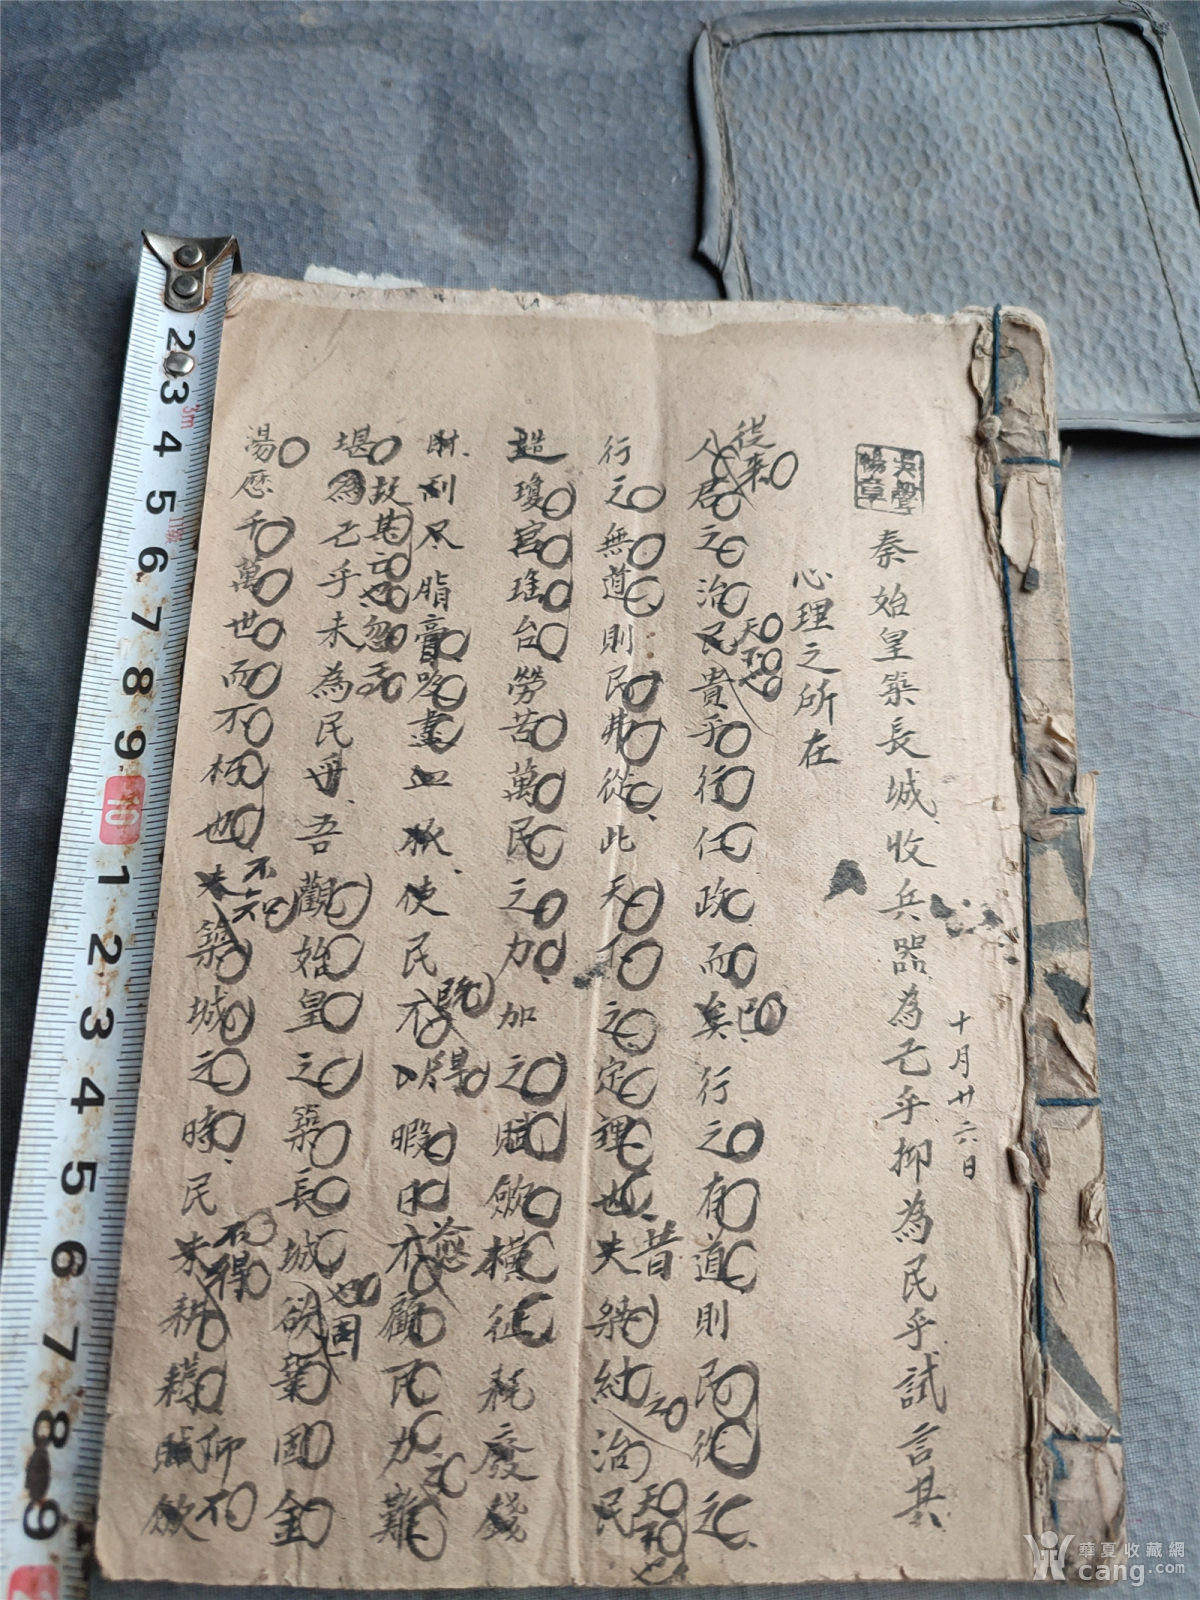 十月廿六日
秦始皇築長城收兵器為己乎抑為民乎試言其
心理之所在
從來
人君之治民貴乎行仁政而矣行之有道則民從之
天下
已
行之無道則民弗從此天下之定理也夫桀紂治民
昔
之
造瓊宮瑤台勞苦萬民之力加之賦斂橫征耗廢錢
財刮尽脂膏吸盡血脈使民不暇日不顧民力難
既
得
愈
之
堪為己乎未為民毋吾觀始皇之築長城欲鞏固金
故其亡也忽焉
也
固
湯歷千萬世而不朽也築城之時民未耕耨賦斂
不知
不得
仰不
2 3 4 5 6 7 8 9 10 1 2 3 4 5 6 7 8 9
3m
華夏收藏網
cang.com